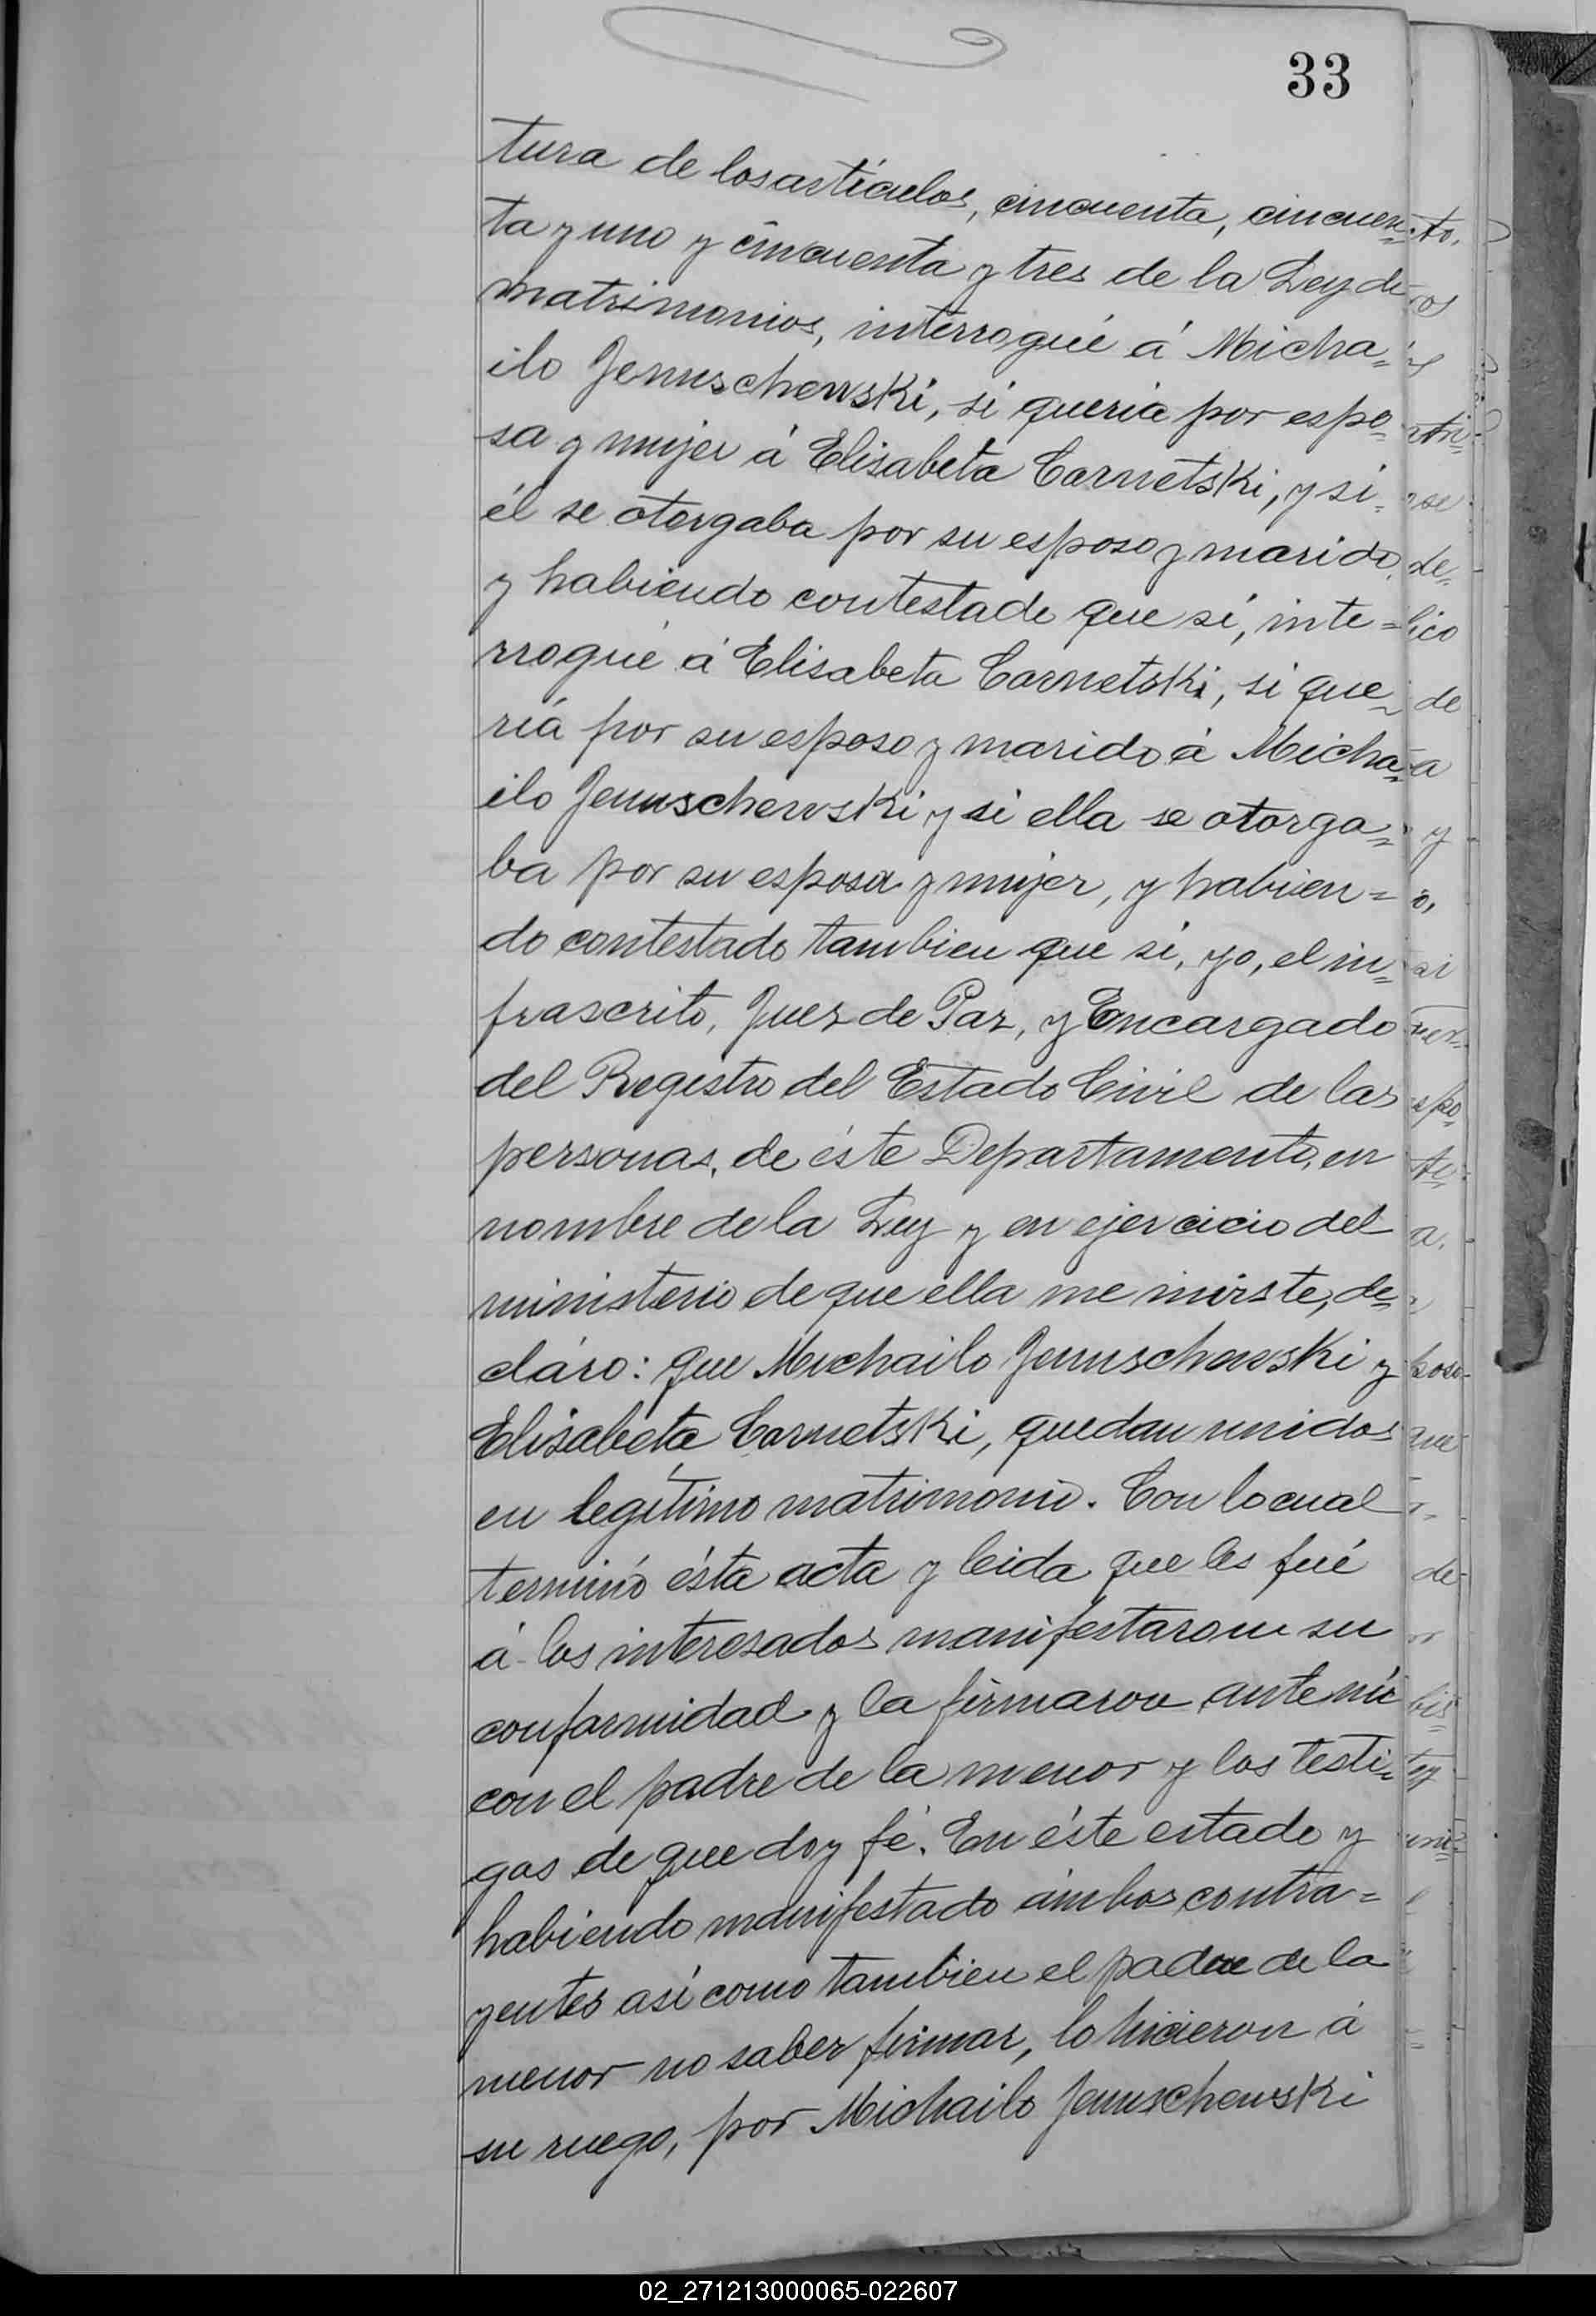 33
tura de los artículos, cincuenta, cincuen=
ta y uno y cincuenta y tres de la Ley de
matrimonios, interrogué á Micha=
ilo Jenuschewski, si queria por espo=
sa y mujer á Elisabeta Carnetski, y si
él se otorgaba por su esposo y marido,
y habiendo contestado que sí, inte=
rrogué á Elisabeta Carnetski, si que=
ría por su esposo y marido á Micha=
ilo Jenuschewski y si ella se otorga=
ba por su esposa y mujer, y habien=
do contestado tambien que si, yo, el in=
frascrito, Juez de Paz, y Encargado
del Registro del Estado Civil de las
personas, de éste Departamento, en
nombre de la Ley y en ejercicio del
ministerio de que ella me inviste, de=
cláro: que Michailo Jenuschewski y
Elisabeta Carnetski, quedan unidos
en legítimo matrimonio. Con lo cual
terminó ésta acta y leida que les fué
á los interesados manifestaron su
conformidad y la firmaron ante mí
con el padre de la menor y los testi=
gos de que doy fé. En éste estado y
habiendo manifestado ámbos contra=
yentes así como tambien el padre de la
menor no saber firmar, lo hicieron á
su ruego, por Michailo Jenuschewski
02_271213000065-022607